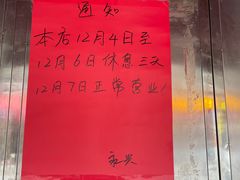 通知
本店12月4日至
12月6日休息三天
12月7日正常营业！